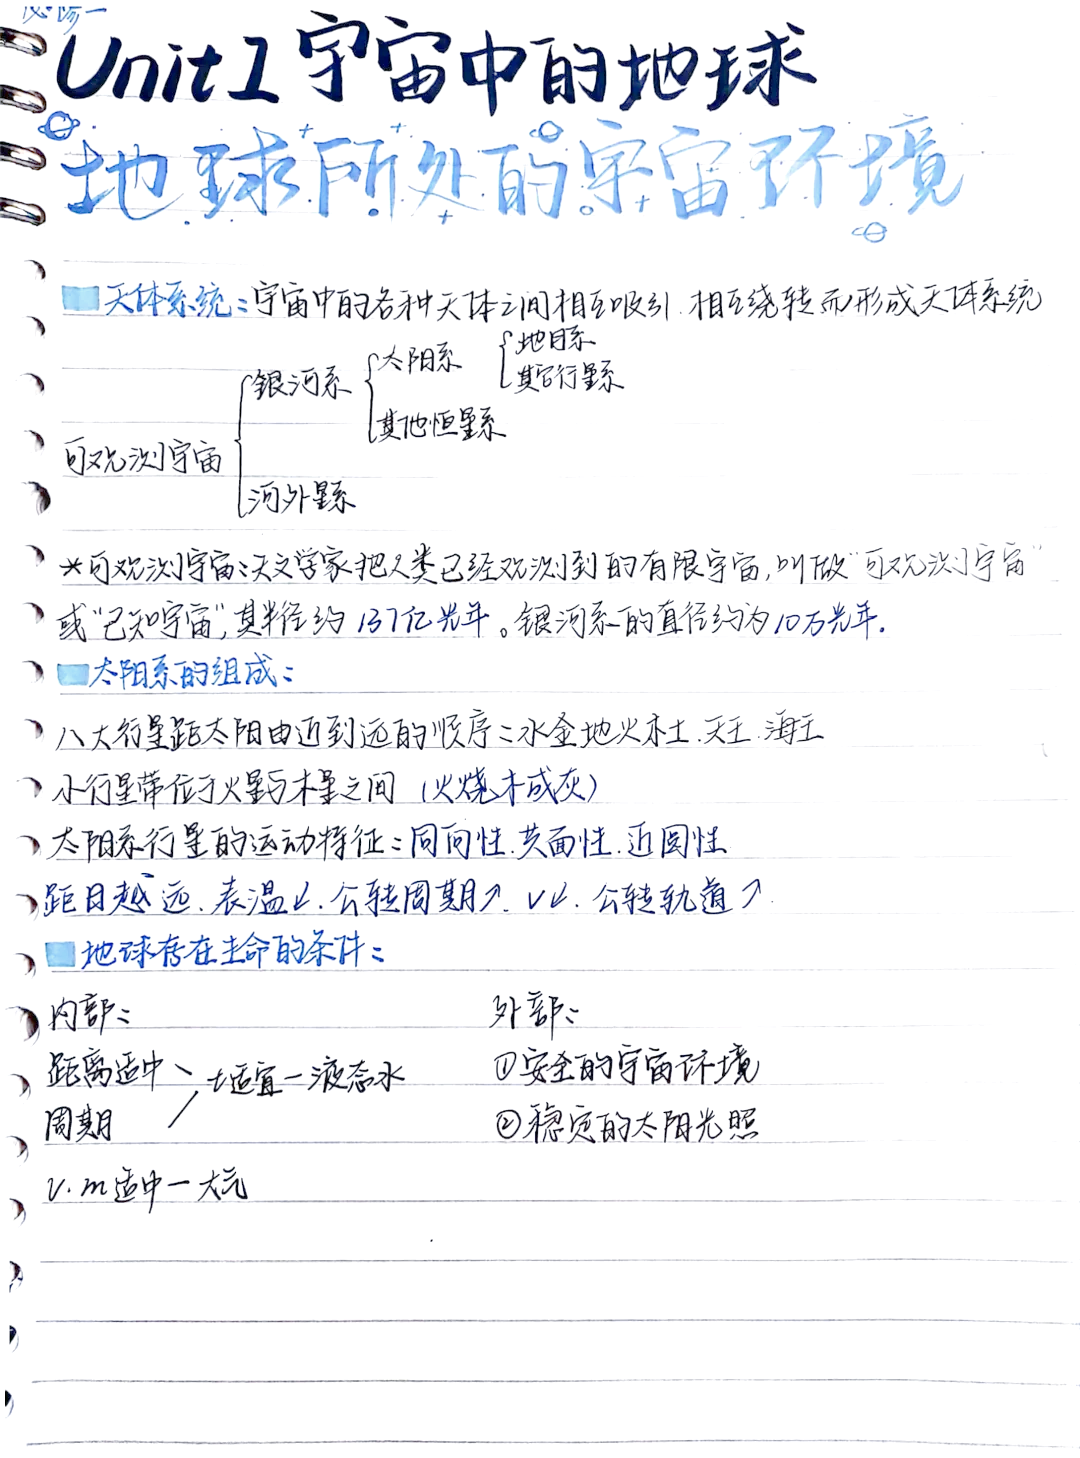 必修一
Unit1 宇宙中的地球
地球所处的宇宙环境
天体系统:宇宙中的各种天体之间相互吸引.相互绕转而形成天体系统
可观测宇宙
银河系
太阳系
地月系
其它行星系
其他恒星系
河外星系
*可观测宇宙:天文学家把人类已经观测到的有限宇宙,叫做"可观测宇宙"
或"已知宇宙",其半径约137亿光年。银河系的直径约为10万光年.
太阳系的组成:
八大行星距太阳由近到远的顺序:水金地火木土.天王.海王
小行星带位于火星与木星之间 (火烧木成灰)
太阳系行星的运动特征:同向性.共面性.近圆性
距日越远.表温↓.公转周期↗.v↓.公转轨道↗.
地球存在生命的条件:
内部: 外部:
距离适中 t适宜—液态水 ①安全的宇宙环境
周期 ②稳定的太阳光照
v.m适中—大气